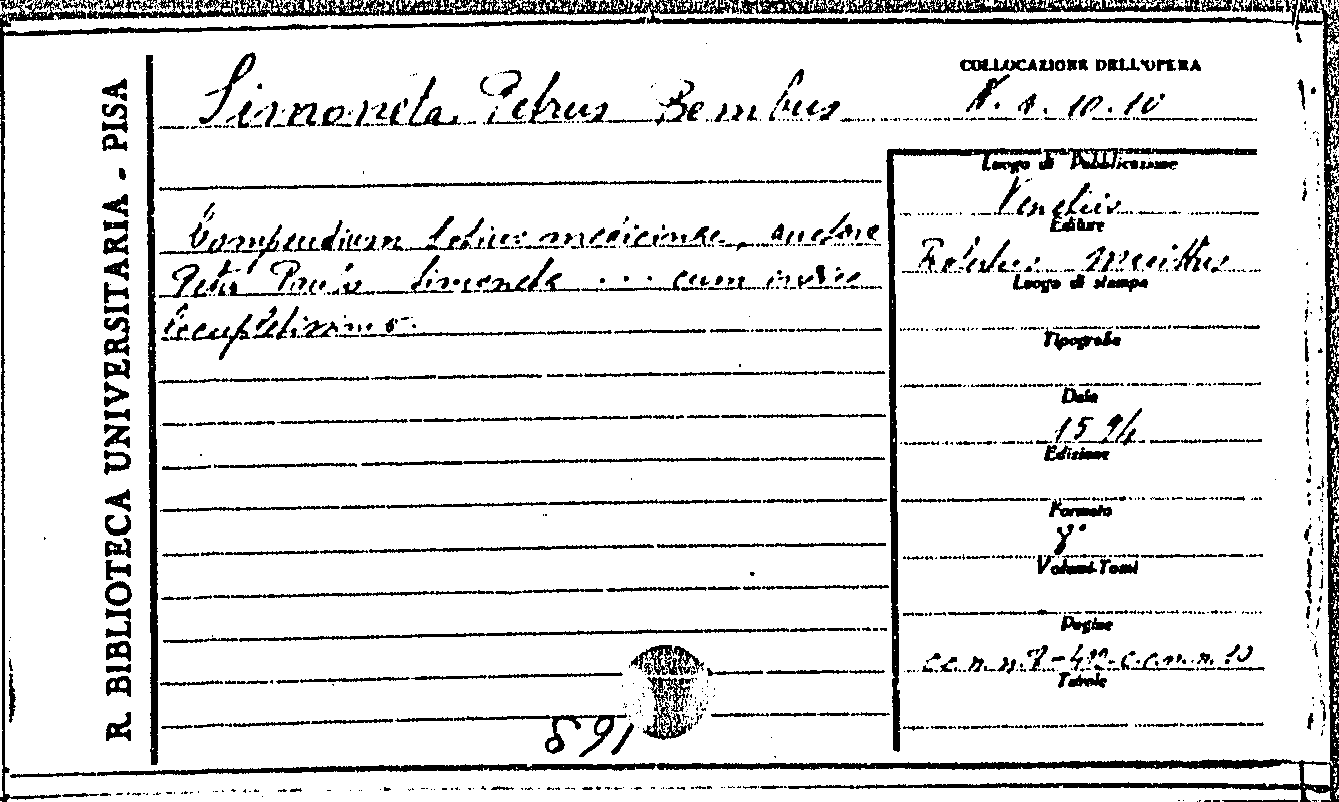 R. BIBLIOTECA UNIVERSITARIA - PISA
Simoneta Petrus Bembus
COLLOCAZIONE DELL'OPERA
N. 1. 10. 10
Compendium totius medicinae, auctore
Petro Paulo Simoneta ... cum indice
locupletissimo.
Luogo di Pubblicazione
Venetiis
Editore
Robertus Meiettus
Luogo di stampa
Tipografia
Data
1594
Edizione
Formato
8°
Volumi-Tomi
Pagine
cc. n. n.
Tavole
891